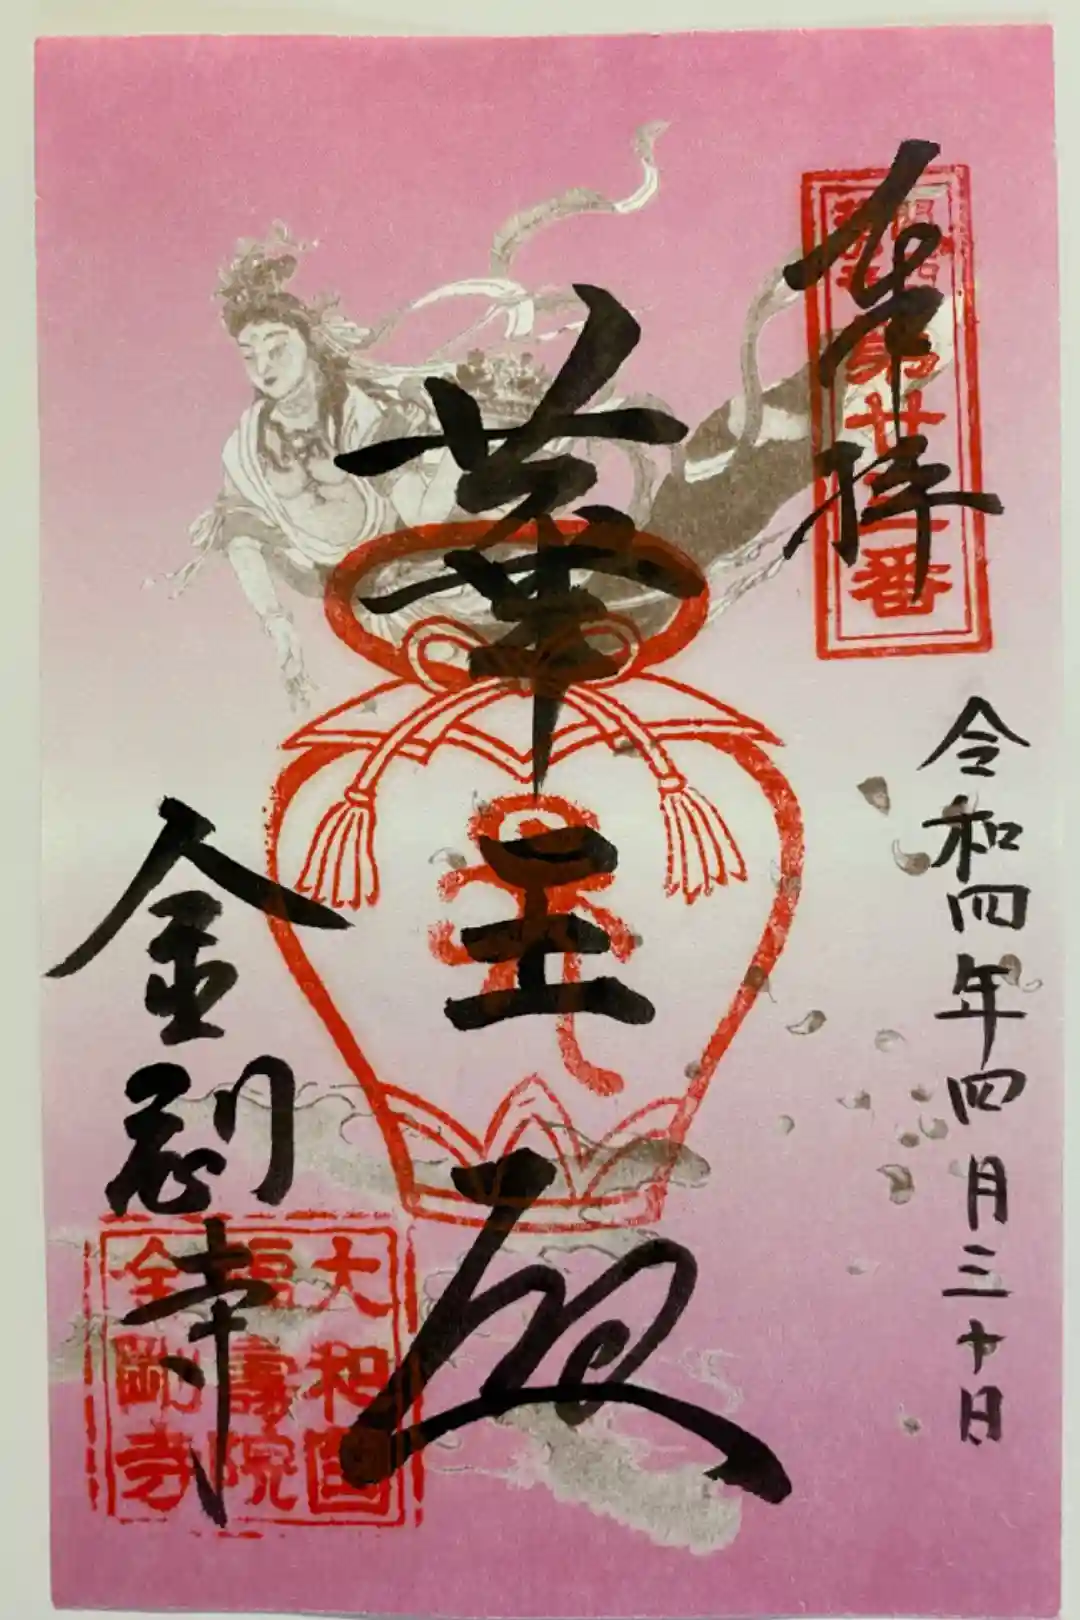 奉拝
第廿二番
令和四年四月三十日
華王殿
金剛寺
大和国
福壽院
金剛寺